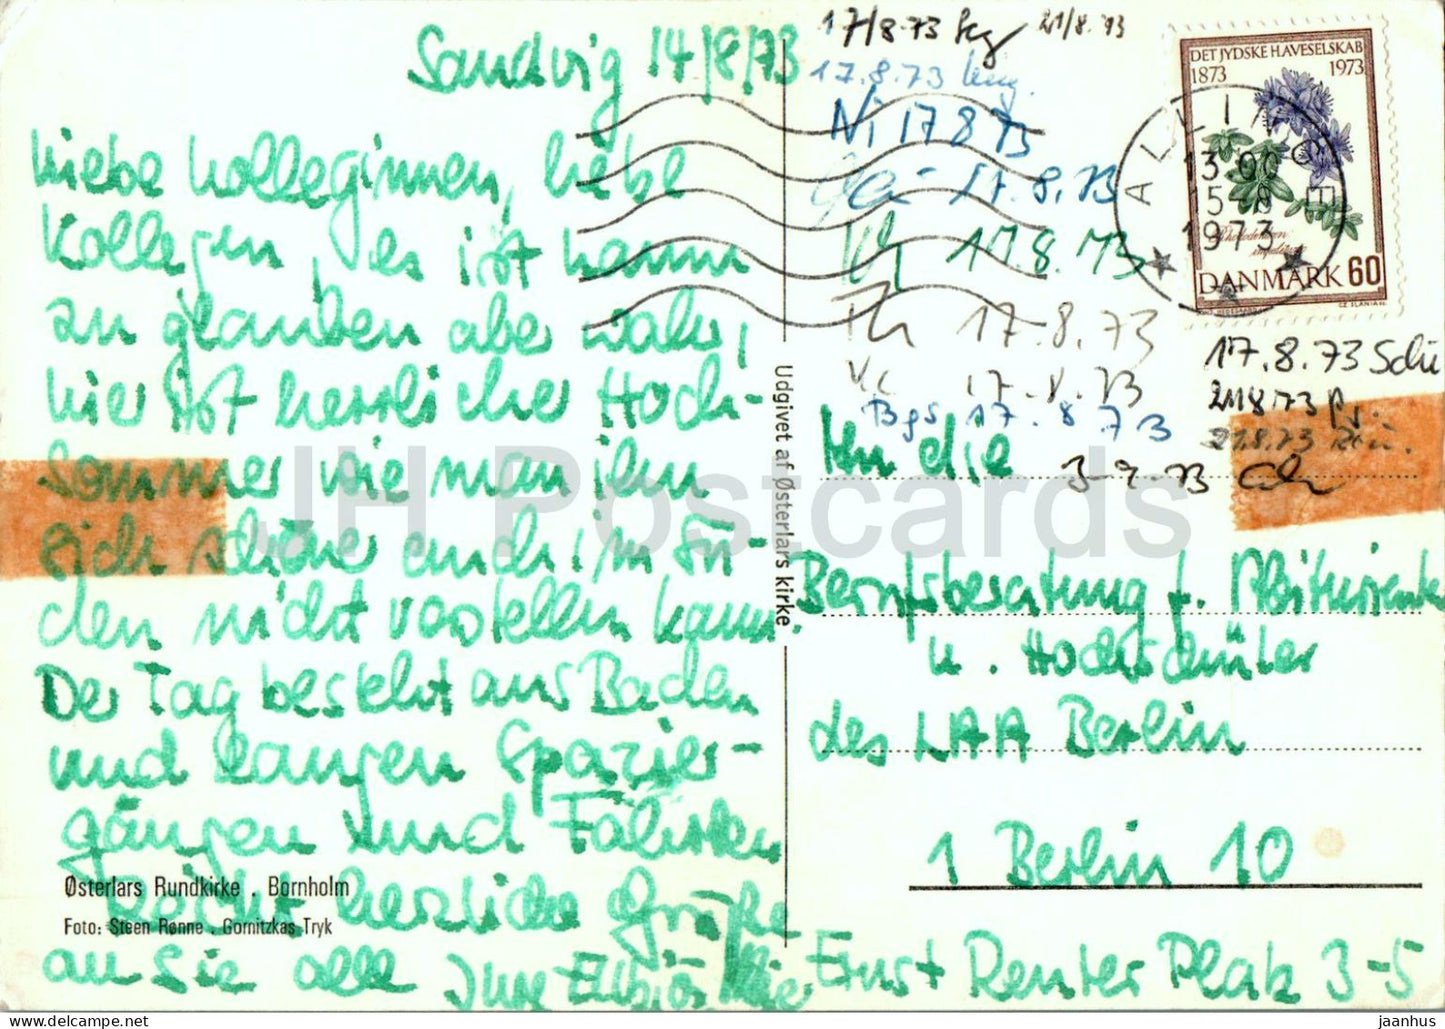 Sandvig 14/8/73
Liebe Kolleginnen, liebe
Kollegen, es ist kaum
zu glauben aber wahr,
hier ist herrlicher Hoch-
sommer wie man ihn
sich schöner auch im Sü-
den nicht vorstellen kann.
Der Tag besteht aus Baden
und langen Spazier-
gängen und Fährten
Recht herzliche Grüße
an Sie alle Ihre
Østerlars Rundkirke . Bornholm
Foto: Steen Rønne . Gornitzkas Tryk
Udgivet af Østerlars kirke
17/8.73 21/8.73
17.8.73
Ni 17 8 73
17.8.73
17.8.73
17.8.73
17.8.73
Bgs 17.8 73
DET JYDSKE HAVESELSKAB
1873 1973
DANMARK 60
ALLINGE
13.00
15-8
1973
17.8.73 Schü
21.8.73
21.8.73
3-9-73
An die
Berufsberatung f. Abiturienten
u. Hochschüler
des LAA Berlin
1 Berlin 10
Ernst Reuter Platz 3-5
JH Postcards
https://www.jaanhus.com
jaanhus